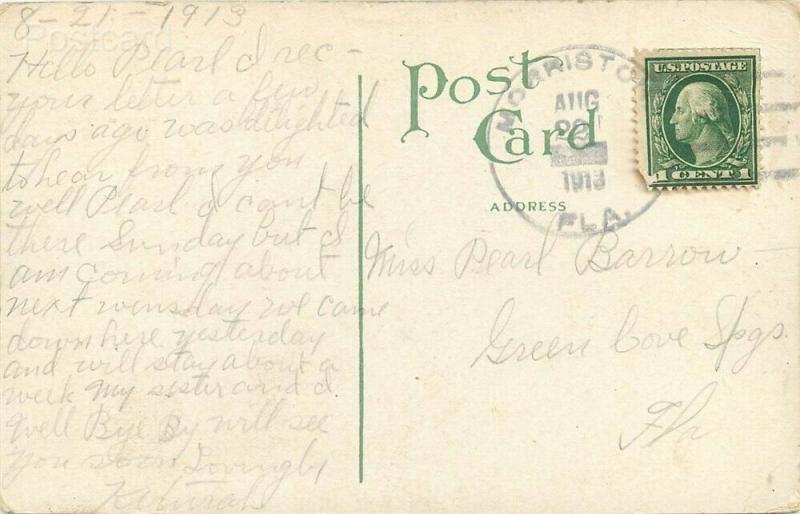 8-21-1913
Postcard
Hello Pearl I rec-
your letter a few
days ago was delighted
to hear from you
well Pearl I cant be
there Sunday but I
am coming about
next wensday we came
down here yesterday
and will stay about a
week My sister and I
Well Bye By will see
you soon Lovingly
Post Card
ADDRESS
AUG
1913
FLA.
U.S. POSTAGE
1 CENT 1
Miss Pearl Barrow
Green Cove Spgs.
Fla